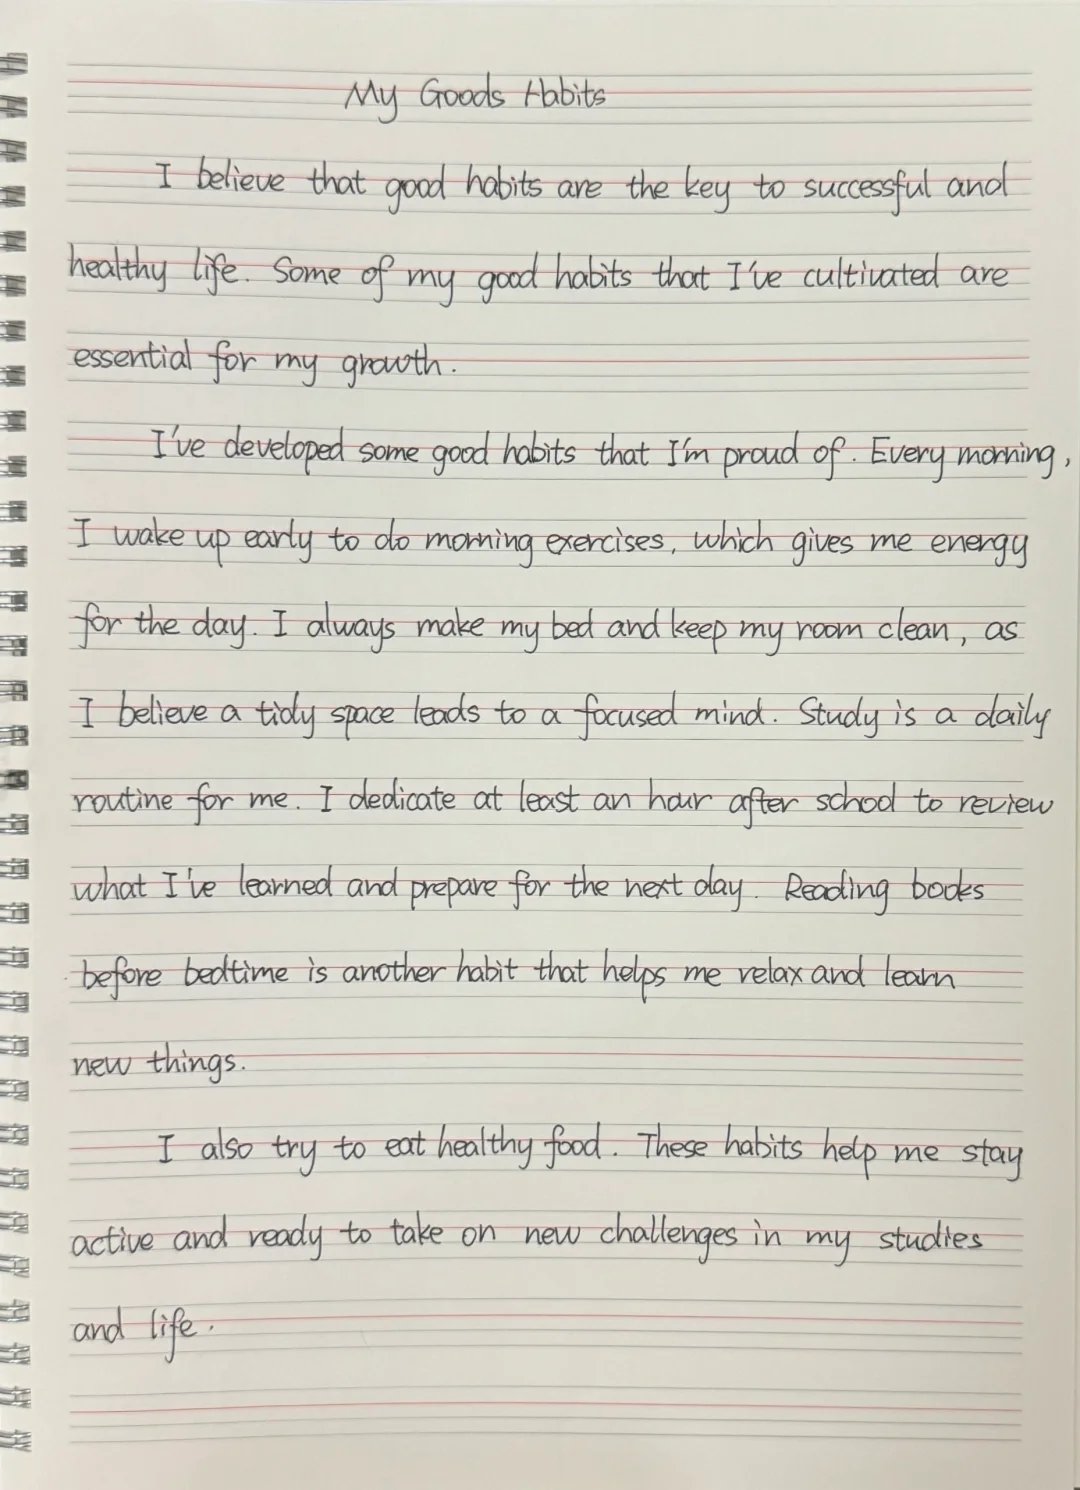 My Goods Habits
I believe that good habits are the key to successful and
healthy life. Some of my good habits that I've cultivated are
essential for my growth.
I've developed some good habits that I'm proud of. Every morning,
I wake up early to do morning exercises, which gives me energy
for the day. I always make my bed and keep my room clean, as
I believe a tidy space leads to a focused mind. Study is a daily
routine for me. I dedicate at least an hour after school to review
what I've learned and prepare for the next day. Reading books
before bedtime is another habit that helps me relax and learn
new things.
I also try to eat healthy food. These habits help me stay
active and ready to take on new challenges in my studies
and life.